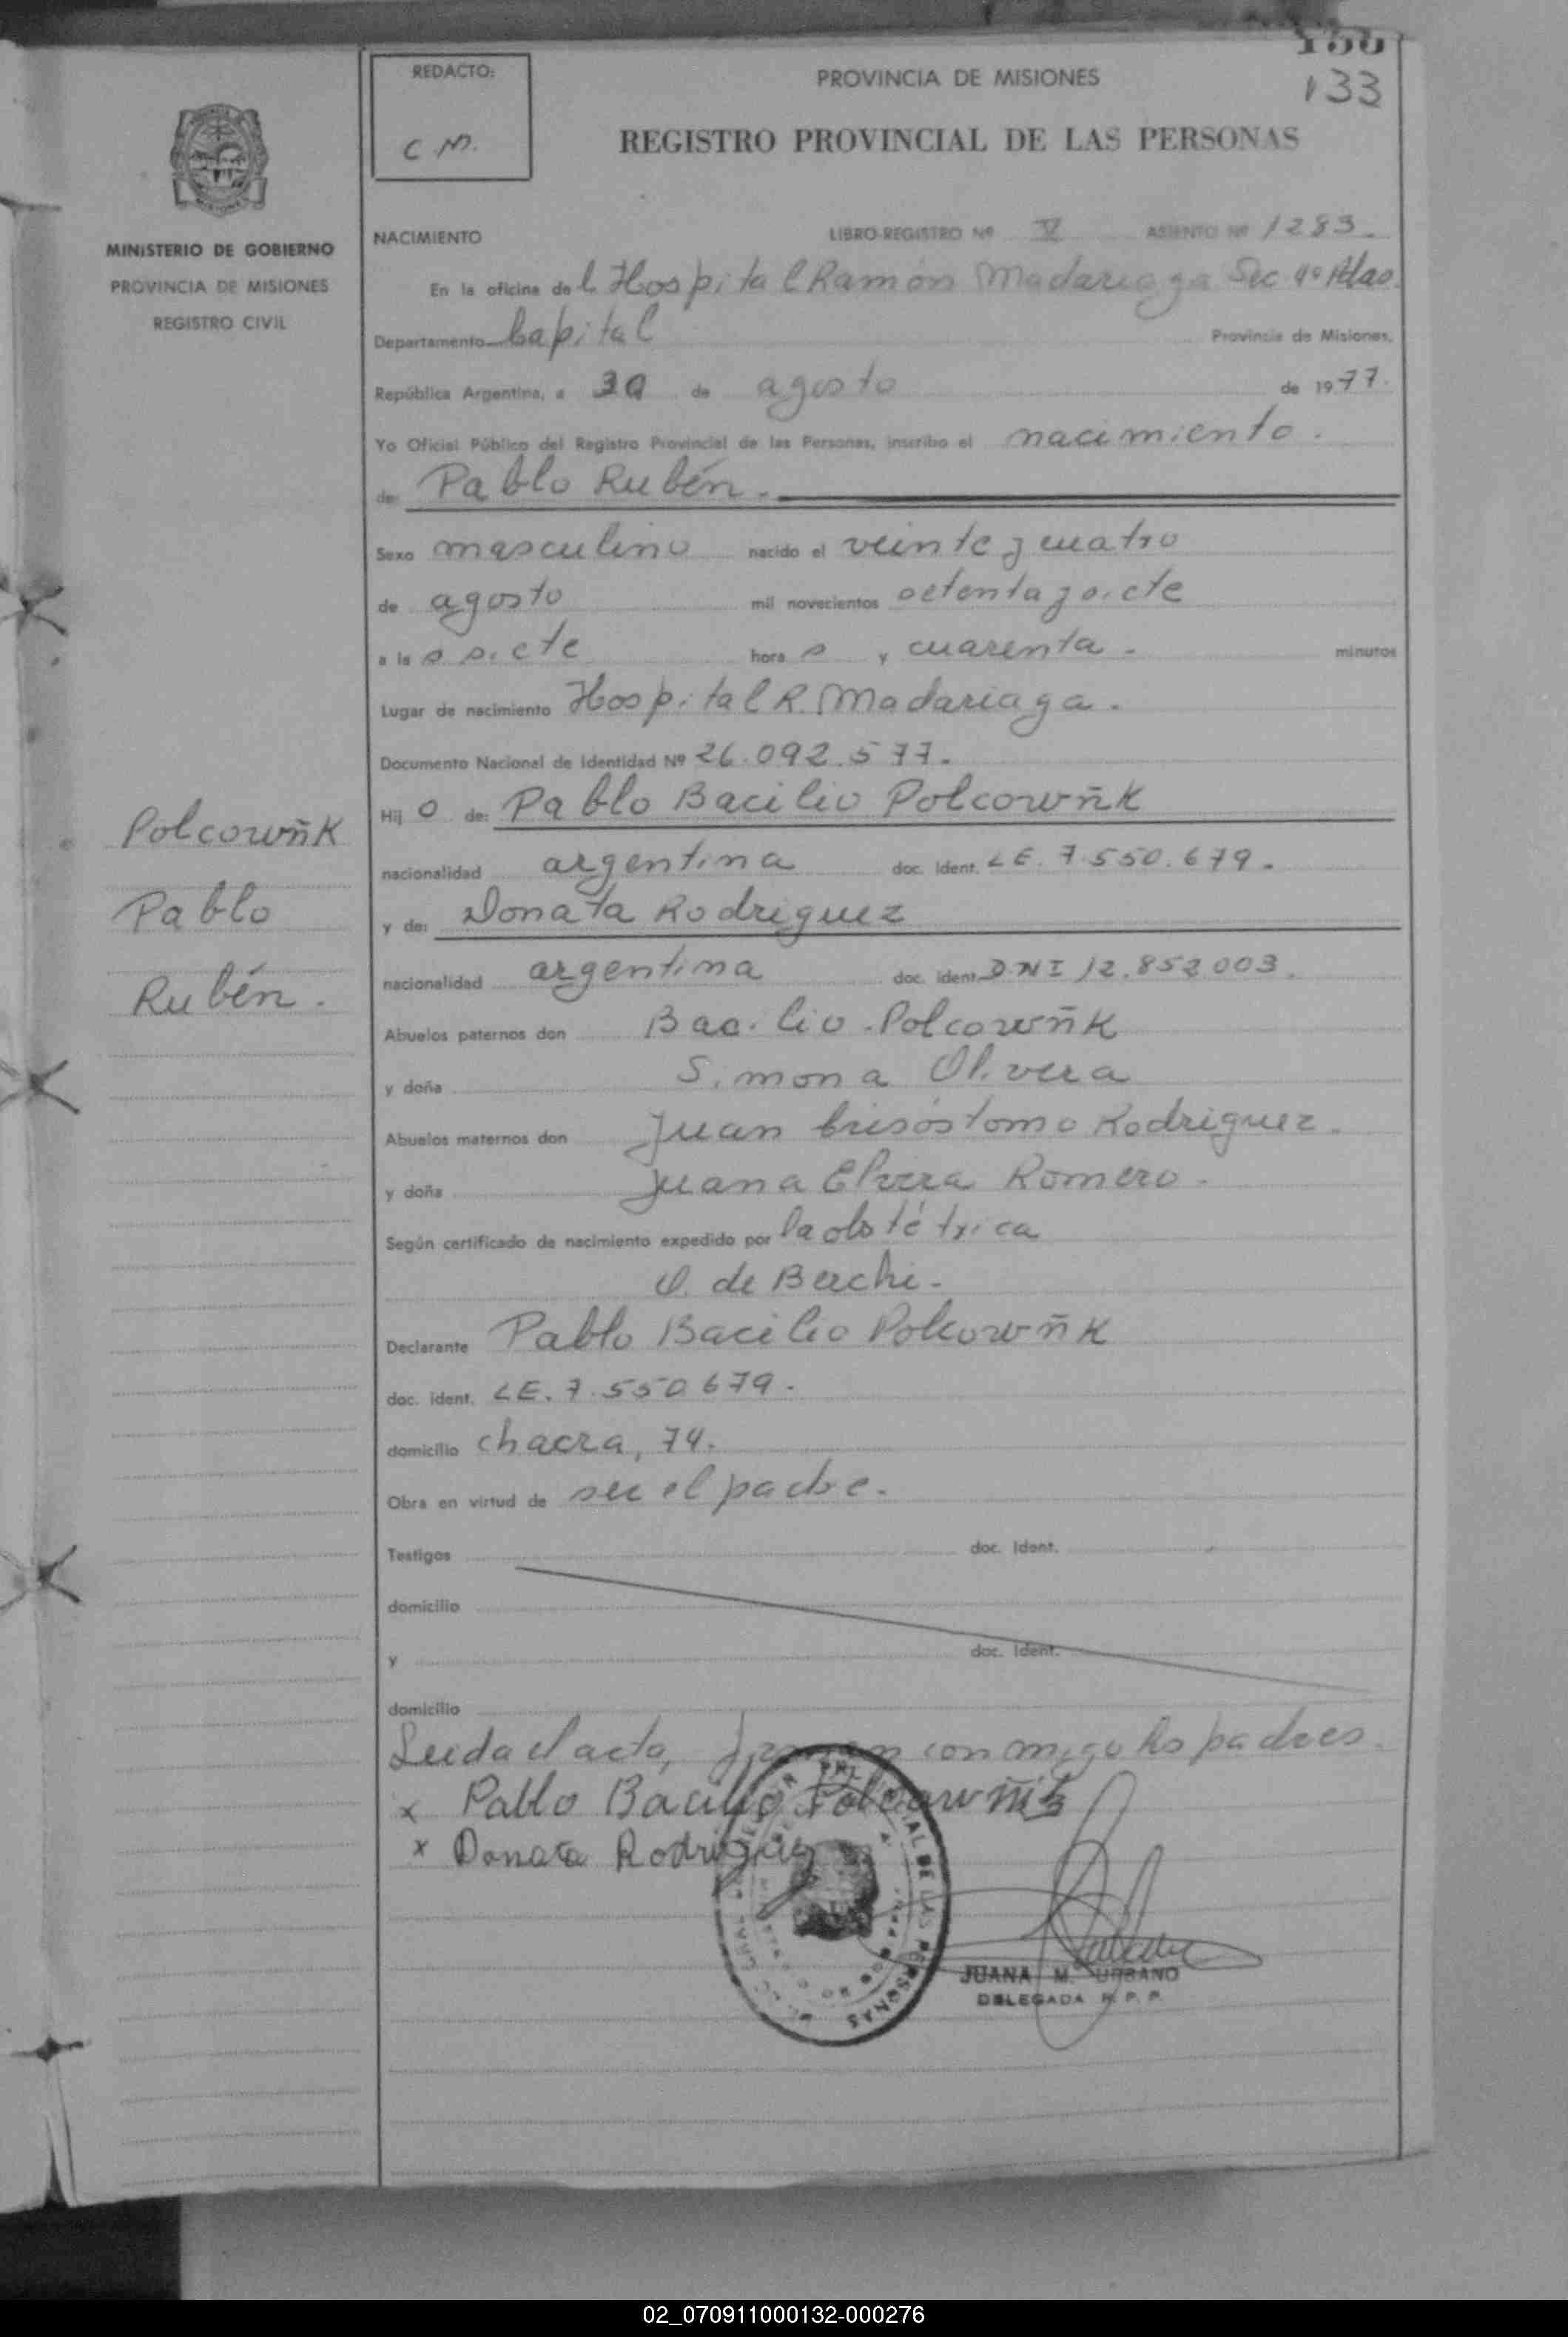 133
REDACTO:
C M.
PROVINCIA DE MISIONES
REGISTRO PROVINCIAL DE LAS PERSONAS
MINISTERIO DE GOBIERNO
PROVINCIA DE MISIONES
REGISTRO CIVIL
NACIMIENTO LIBRO-REGISTRO Nº V ASIENTO Nº 1283.
En la oficina del Hospital Ramón Madariaga Sec 4º Pdas.
Departamento Capital Provincia de Misiones.
República Argentina, a 30 de agosto de 1977.
Yo Oficial Público del Registro Provincial de las Personas, inscribo el nacimiento.
de: Pablo Rubén.
Sexo masculino nacido el veinte y cuatro
de agosto mil novecientos setenta y siete
a las siete horas y cuarenta. minutos
Lugar de nacimiento Hospital R. Madariaga.
Documento Nacional de Identidad Nº 26.092.577.
Hijo de: Pablo Bacilio Polcowñk
Polcowñk
Pablo
Rubén.
nacionalidad argentina doc. Ident. LE. 7.550.679.
y de: Donata Rodriguez
nacionalidad argentina doc. Ident. DNI 12.852.003.
Abuelos paternos don Bacilio Polcowñk
y doña Simona Olivera
Abuelos maternos don Juan Crisóstomo Rodriguez.
y doña Juana Elvira Romero.
Según certificado de nacimiento expedido por la obstétrica
O. de Berchi.
Declarante Pablo Bacilio Polcowñk
doc. Ident. LE. 7.550.679.
domicilio chacra, 74.
Obra en virtud de ser el padre.
Testigos doc. Ident.
domicilio
y doc. Ident.
domicilio
Leida el acta, firman conmigo los padres.
x Pablo Bacilio Polcowñk
x Donata Rodriguez
JUANA M. URBANO
DELEGADA R. P. P.
02_070911000132-000276